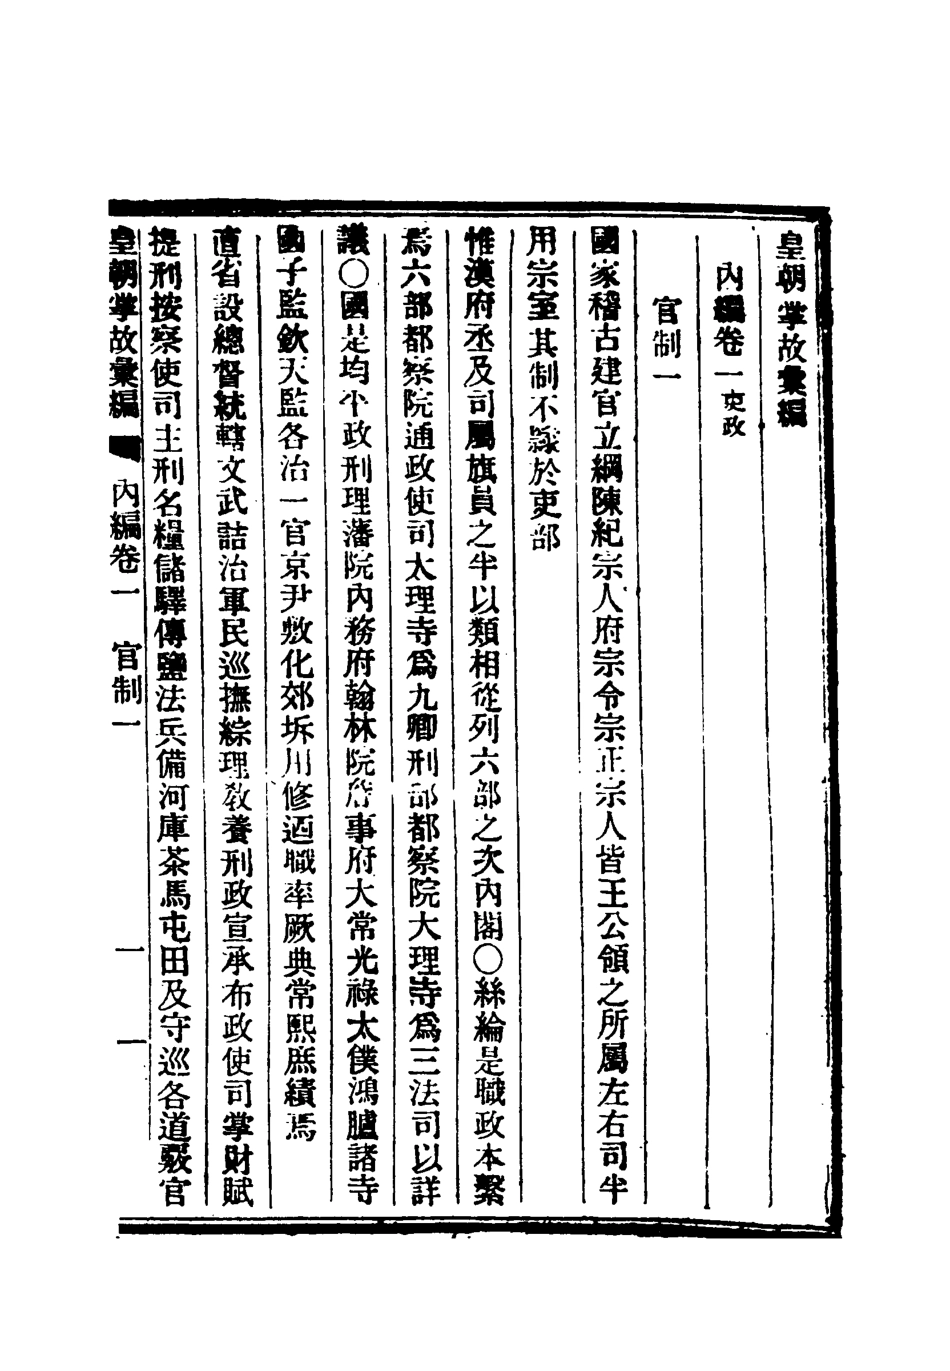 皇朝掌故彙編
內編卷一 吏政
官制一
國家稽古建官立綱陳紀宗人府宗令宗正宗人皆王公領之所屬左右司半
用宗室其制不隸於吏部
惟漢府丞及司屬旗員之半以類相從列六部之次內閣〇絲綸是職政本繫
焉六部都察院通政使司大理寺爲九卿刑部都察院大理寺爲三法司以詳
讞〇國是均平政刑理藩院內務府翰林院詹事府大常光祿太僕鴻臚諸寺
國子監欽天監各治一官京尹敷化郊圻川修迺職率厥典常熙庶績焉
直省設總督統轄文武詰治軍民巡撫綜理敎養刑政宣承布政使司掌財賦
提刑按察使司主刑名糧儲驛傳鹽法兵備河庫茶馬屯田及守巡各道覈官
皇朝掌故彙編 內編卷一 官制一 一 一